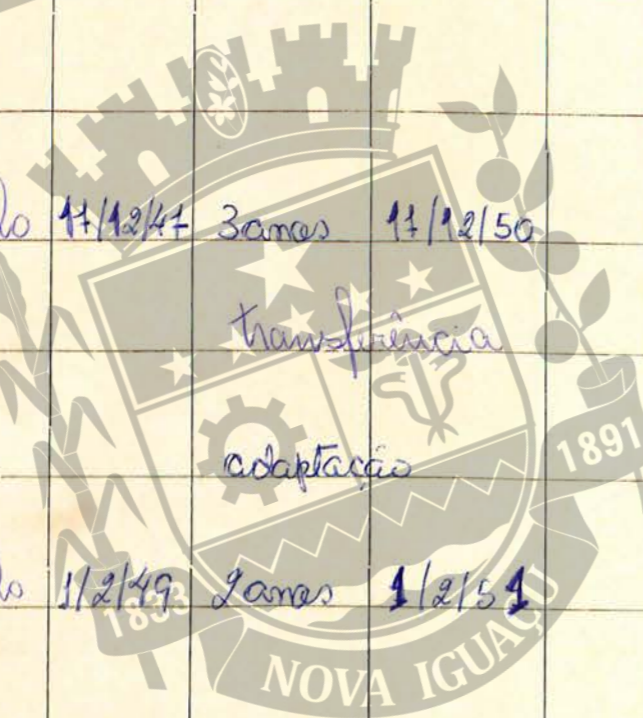 lo 17/12/47 3 anos 17/12/50
transferência
adaptação
1891
lo 1/2/49 2 anos 1/2/51
1833
NOVA IGUAÇU